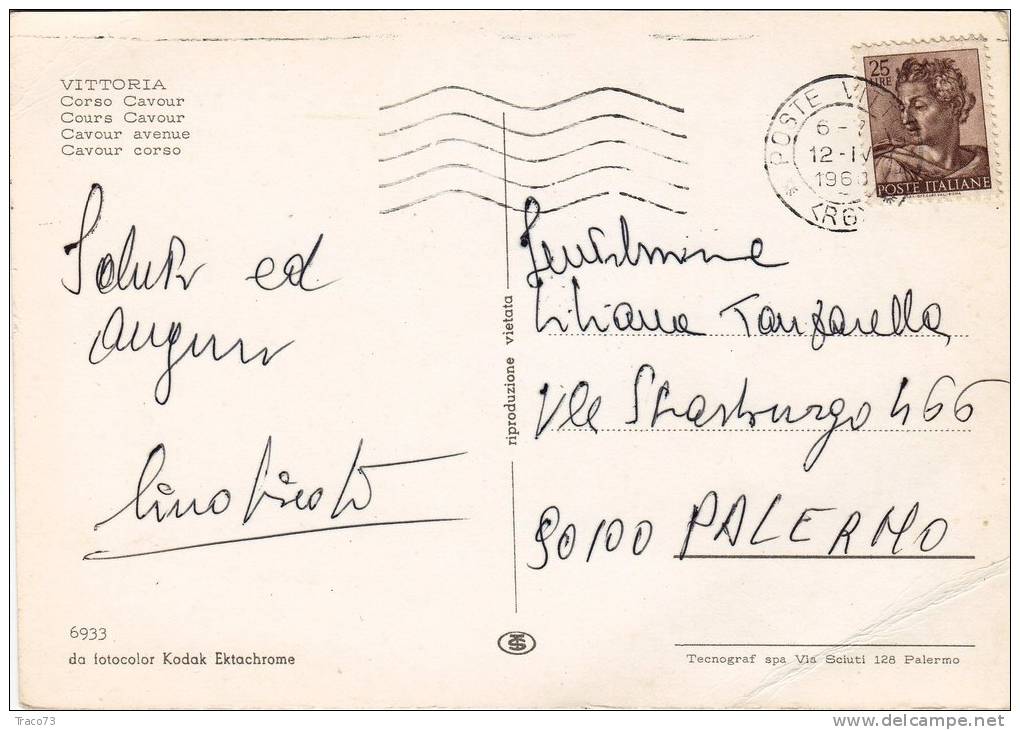 VITTORIA
Corso Cavour
Cours Cavour
Cavour avenue
Cavour corso
Saluti ed
auguri
Lino
POSTE VI
6-7
12-IV
196
(RG)
25
LIRE
POSTE ITALIANE
Gentilissima
Liliana Tanzarella
Vle Strasburgo 466
90100 PALERMO
riproduzione vietata
6933
da fotocolor Kodak Ektachrome
Tecnograf spa Via Sciuti 128 Palermo
Traco73
delcampe.net